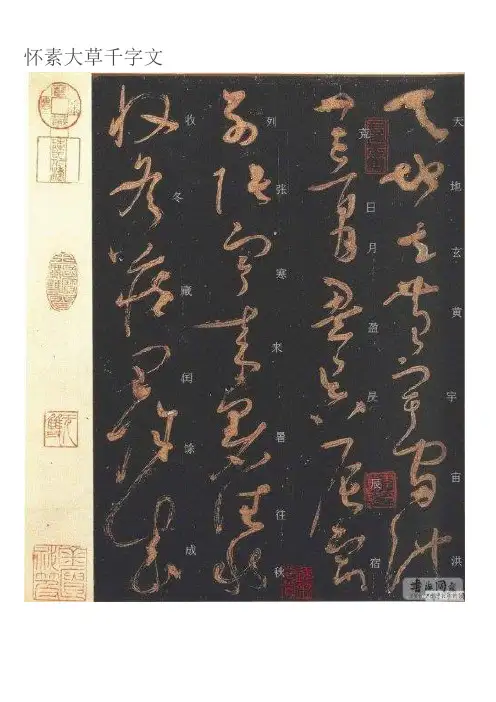 怀素大草千字文
天地玄黄宇宙洪
荒日月盈昃辰宿
列张寒来暑往秋
收冬藏闰馀成